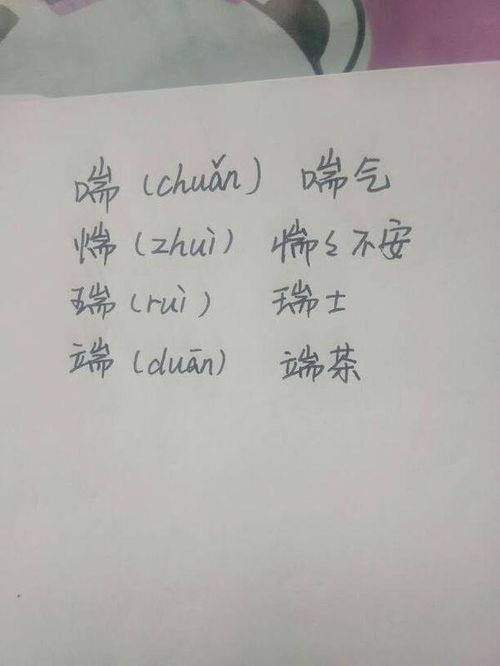 喘（chuǎn） 喘气
惴（zhuì） 惴々不安
瑞（ruì） 瑞士
端（duān） 端茶